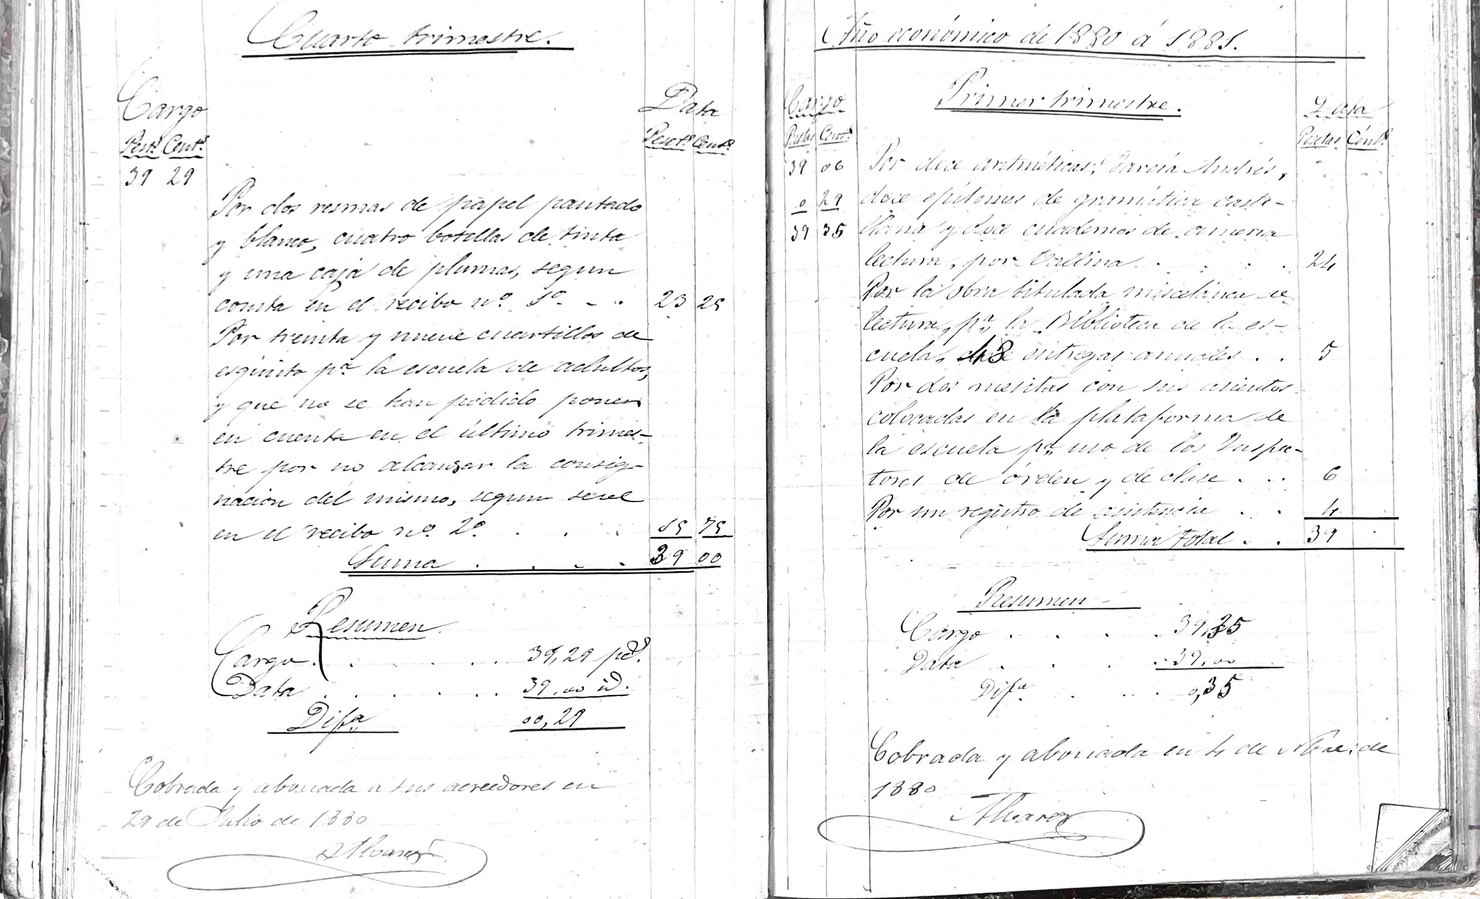 Cuarto trimestre.
Cargo
Data
Pest.s Cent.s
Peset.s Cent.s
39 29
Por dos resmas de papel pautado
y blanco, cuatro botellas de tinta
y una caja de plumas, segun
consta en el recibo nº 1º - . 23 25
Por treinta y nueve cuartillos de
espíritu pª la escuela de adultos,
y que no se han podido poner
en cuenta en el último trimes-
tre por no alcanzar la consig-
nación del mismo, segun se ve
en el recibo nº 2º . . . 15 75
Suma . . . . 39 00
Resumen
Cargo . . . . . 39,29 pts.
Data . . . . . . 39,00 id.
Difª 00,29
Cobrada y abonada a sus acreedores en
29 de Julio de 1880
Alvarez
Año económico de 1880 á 1881.
Primer trimestre.
Cargo
Data
Pesetas Cent.s
Pesetas Cént.s
39 06
0 29
39 35
Por doce aritméticas, García Andrés,
doce epítomes de gramática caste-
llana y doce cuadernos de primera
lectura, por Vallina . . . . 24
Por la obra titulada miscelánea de
lectura, pª la Biblioteca de la es-
cuela, 48 entregas anuales . . 5
Por dos mesitas con sus asientos
colocadas en la plataforma de
la escuela pª uno de los Inspec-
tores de órden y de clase . . . 6
Por un registro de asistencia . . . 4
Suma total . . 39
Resumen
Cargo . . . . 39,35
Data . . . . 39,00
Difª . . . 0,35
Cobrada y abonada en 4 de Nbre. de
1880
Alvarez